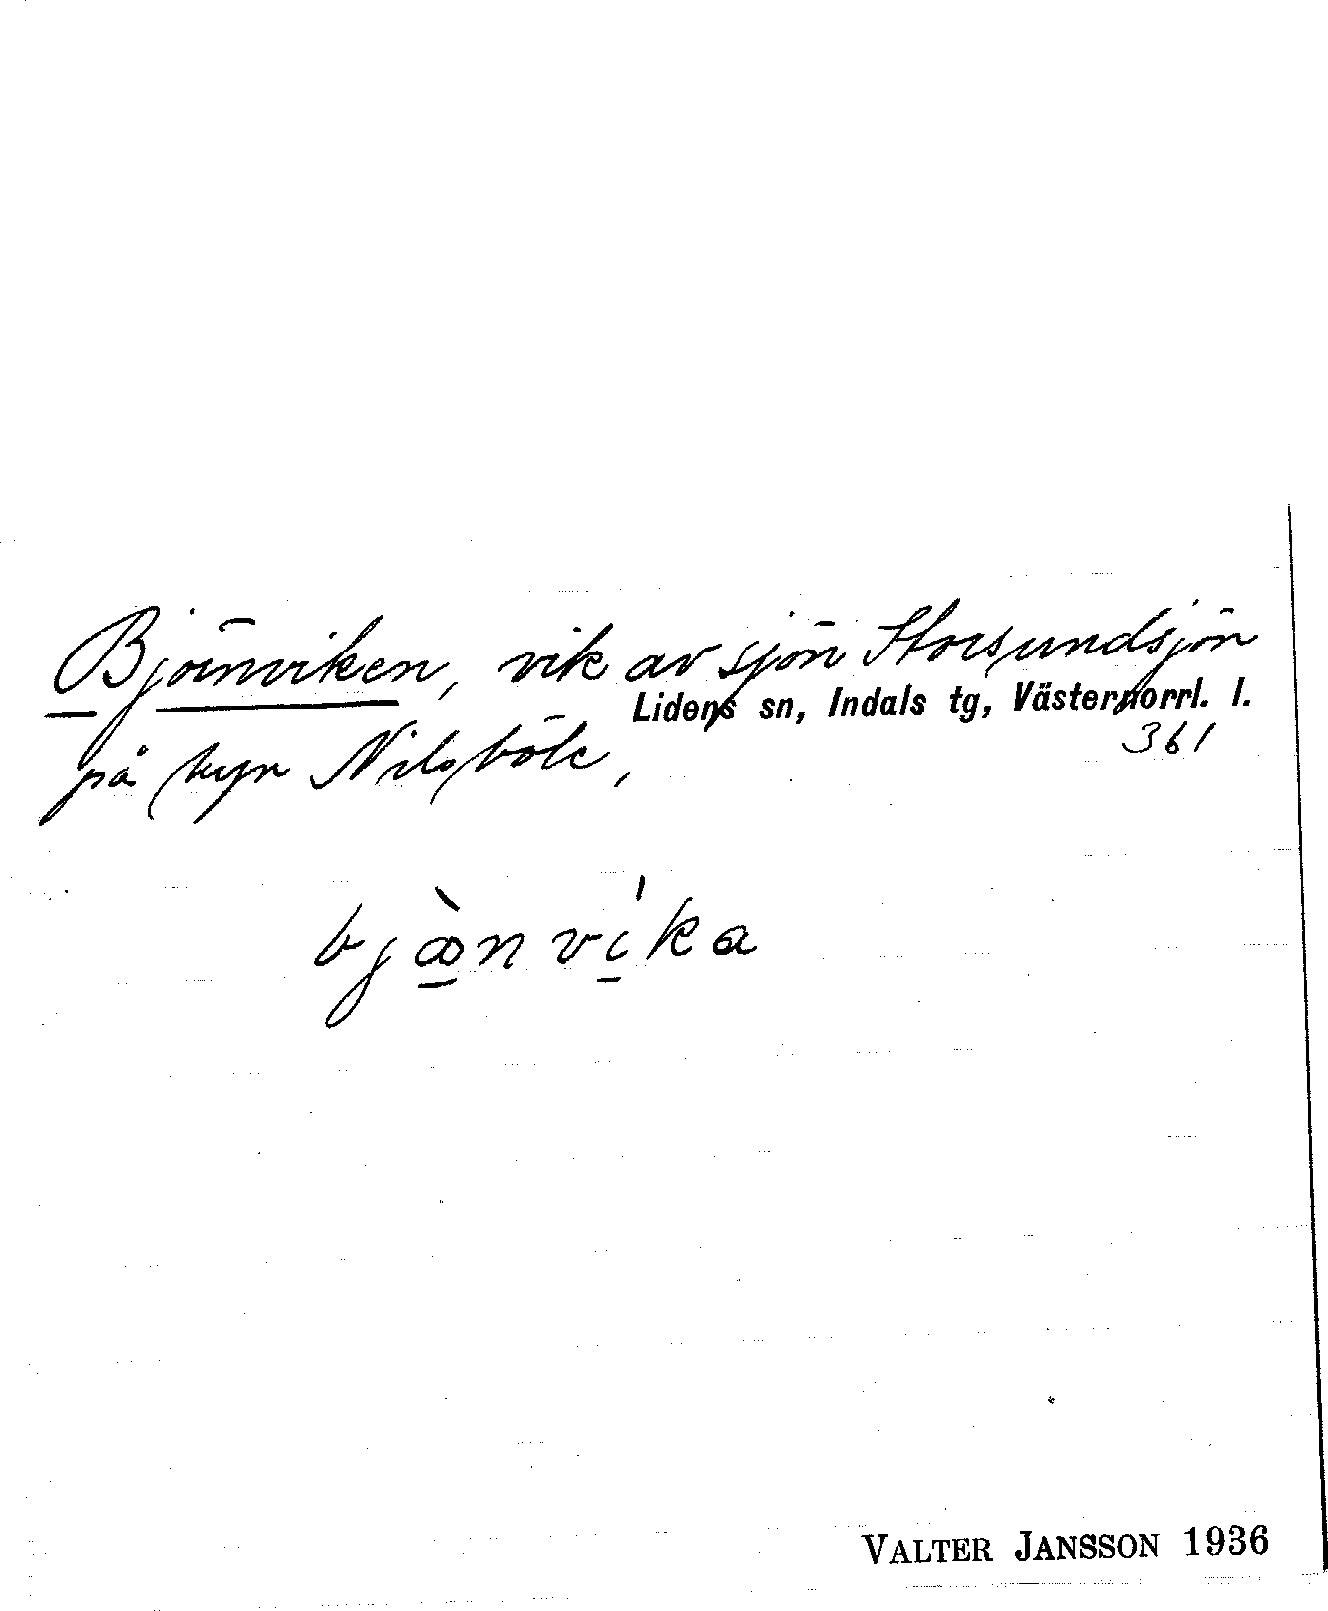 Björnviken, vik av sjön Storsundsjön
Lidens sn, Indals tg, Västernorrl. l.
361
på byn Nilsböle,
bjænvika
VALTER JANSSON 1936